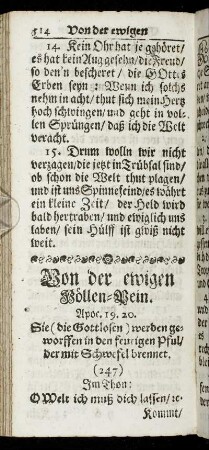 514 Von der ewigen
14. Kein Ohr hat je gehöret/
es hat kein Aug gesehn/ die Freud/
so den'n bescheret/ die GOttes
Erben seyn: Wenn ich solchs
nehm in acht/ thut sich mein Hertz
hoch schwingen/ und geht in vol-
len Sprüngen/ daß ich die Welt
veracht.
15. Drum wolln wir nicht
verzagen/ die jetzt in Trübsal sind/
ob schon die Welt thut plagen/
und ist uns Spinnefeind/ es währt
ein kleine Zeit/ der Held wird
bald hertraben/ und ewiglich uns
laben/ sein Hülff ist gwiß nicht
weit.
Von der ewigen
Höllen-Pein.
Apoc. 19. 20.
Sie (die Gottlosen) werden ge-
worffen in den feurigen Pful/
der mit Schwefel brennet.
(247)
Im Thon:
O Welt ich muß dich lassen/ ꝛc.
Kommt/